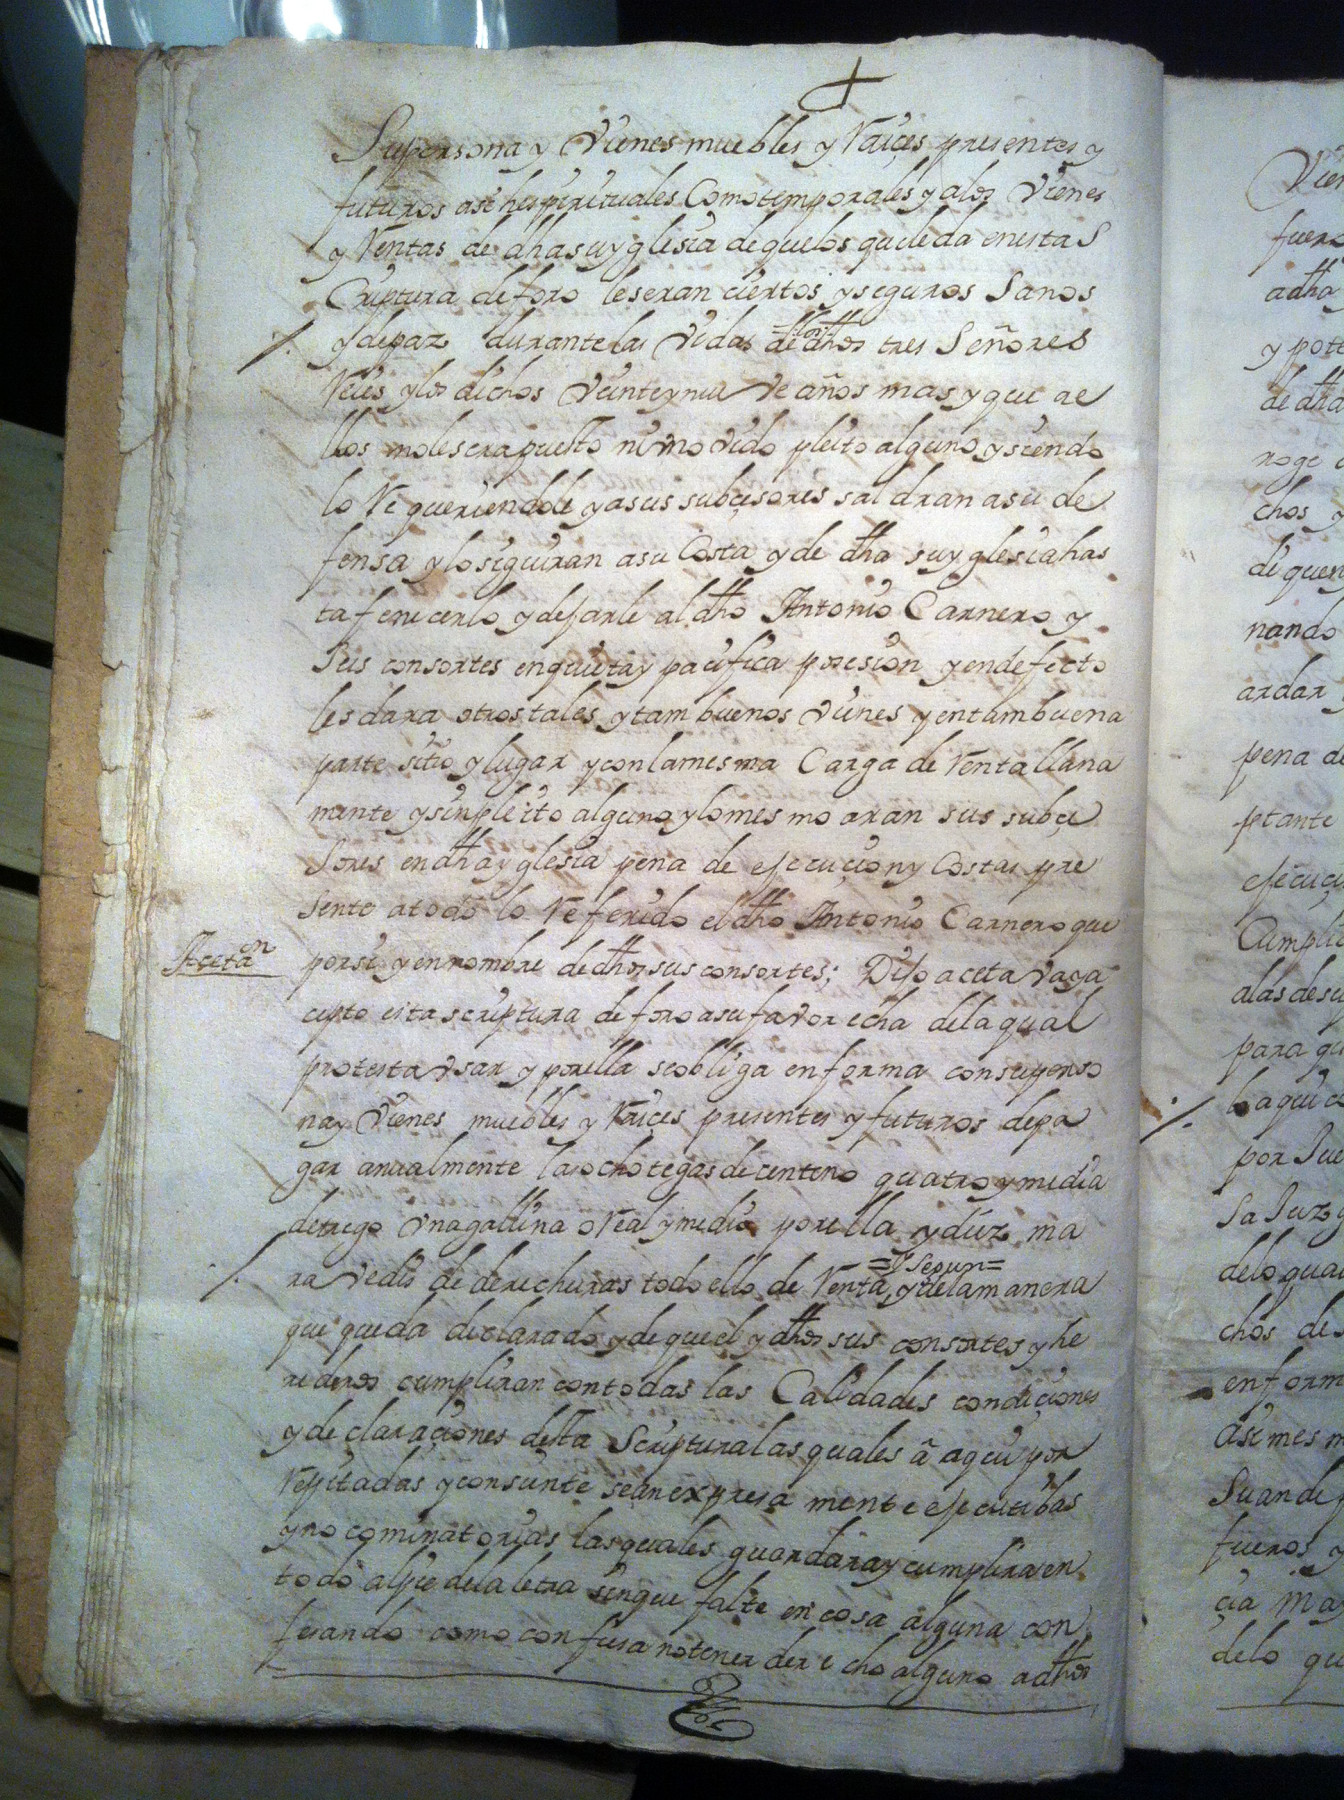 Supersona y Vienes muebles y Raiçes presentes y
futuros asi hespirituales Comotemporales y alos Vienes
y Rentas de dha suyglesia dequelos quelleda enestas
Criptura deforo leseran ciertos yseguros Sanos
ydepaz durantelas Vidas =dlos= de dhos tres Señores
Reies ylos dichos Veinteynue Ve años mas y que ae
llos noles sera puesto ni mo Vido pleito alguno ysiendo
lo Re queriendole yasus subçesores saldran asu de
fensa ylosiguiran asu Costa y de dha suyglesia has
ta feneçerlo ydejarle al dho Antonio Carnero y
Sus consortes enquieta y pacifica posesion yendefecto
lesdara otrostales ytam buenos Vienes yentambuena
parte sitio ylugar yconlamesma Carga de Renta llana
mente ysinpleito alguno ylomesmo aran sus subçe
Sores en dha yglesia pena de ejecuçion y Costas pre
Sente atodo lo Referido el dho Antonio Carnero que
Açetaon
porsi yennombre de dhos sus consortes; Dijo aceta Vaya
cepto esta scriptura de foro asufavor echa dela qual
protesta Vsar y porella seobliga enforma consuperso
nay Vienes muebles y Raiçes presentes y futuros depa
gar anualmente las ocho tegas de centeno quatro y media
detrigo Vnagallina o Real ymedio porella ydiez ma
ra Vedis de derechuras todo ello de Renta, =Y Segun= ydelamanera
que queda declarado ydequeel y dhos sus consortes yhe
rederos cumpliran contodas las Calidades condiçiones
ydeclaraçiones desta Scriptura las quales ã aqui por
Repitadas yconsiente sean expresa mente ejecutibas
yno cominatorias lasquales guardara y cumplira en
todo alpie dela letra sinque falte en cosa alguna con
fesando como confiesa notener derecho alguno a dhos
Vien
fuero
adha
y pote
de dha
chos y
di quen
nando
ardar y
pena de
ptante
ejecuçi
Cumpli
alas desu
para qu
por Jue
Sa Juzg
delo qua
chos des
enform
asi mesm
fueros y
çia May
delo qu